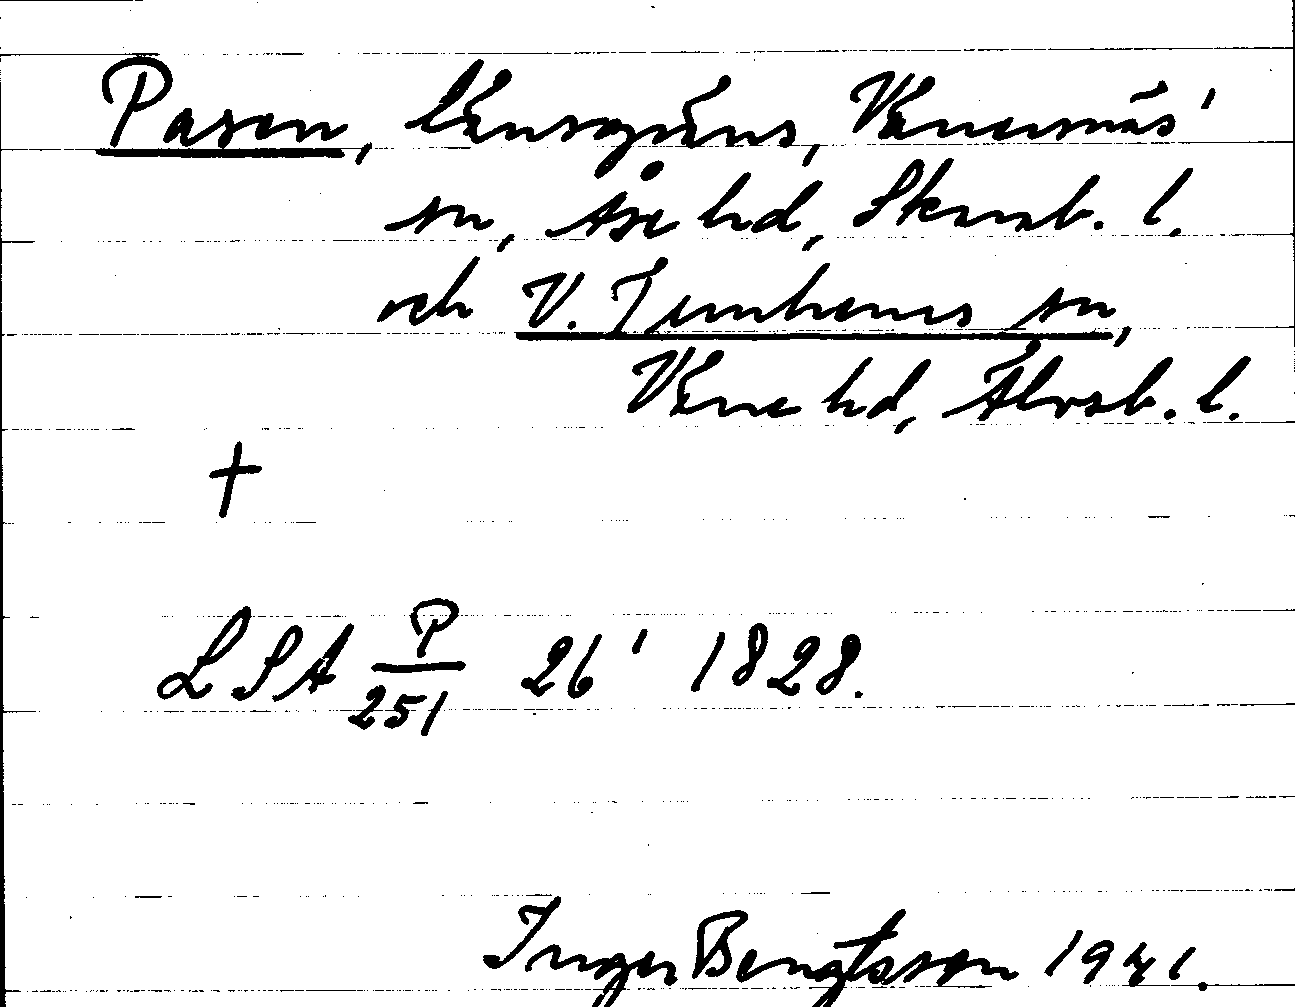 Pason, länsgräns, Vänersnäs'
sn, Åse hd, Skarab. l.
och V. Tunhems sn,
Väne hd, Älvsb. l.
+
LSA P/251 26' 1828.
Inger Bengtsson 1941.